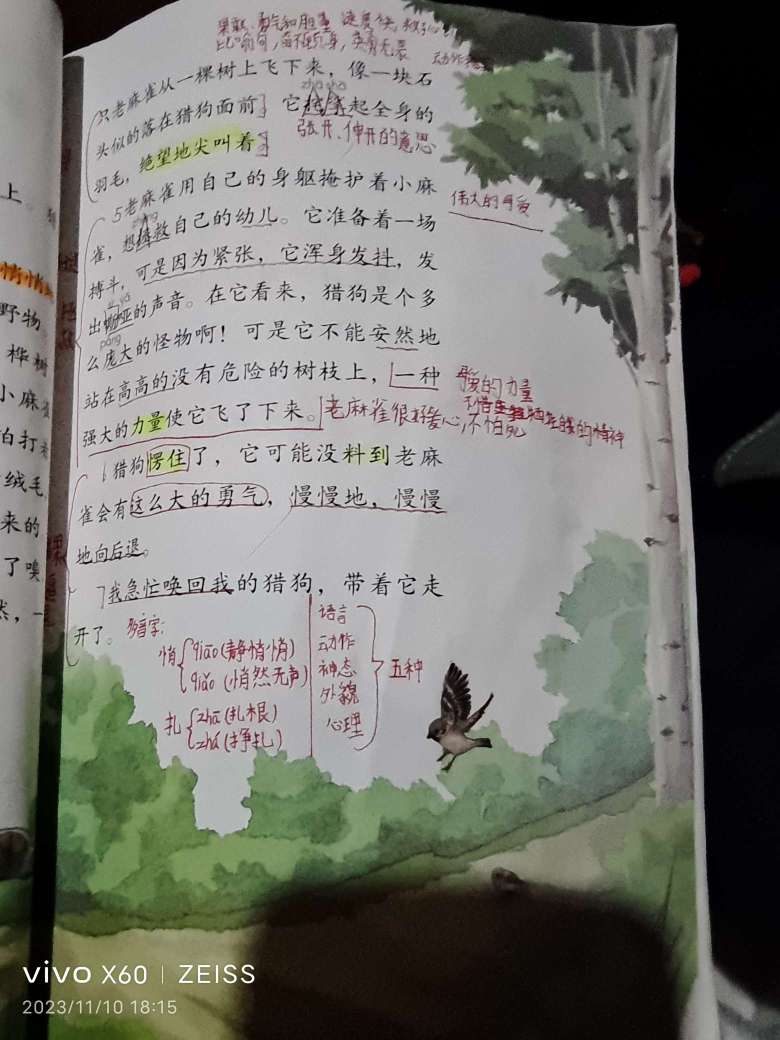 果敢、勇气和胆量
比喻句,奋不顾身,英勇无畏
只老麻雀从一棵树上飞下来,像一块石
头似的落在猎狗面前。它挓挲起全身的
zhā shā
羽毛,绝望地尖叫着。
张开、伸开的意思
5老麻雀用自己的身躯掩护着小麻
伟大的母爱
雀,想拯救自己的幼儿。它准备着一场
搏斗,可是因为紧张,它浑身发抖,发
出嘶哑的声音。在它看来,猎狗是个多
么庞大的怪物啊!可是它不能安然地
páng
站在高高的没有危险的树枝上,一种
爱的力量
强大的力量使它飞了下来。
老麻雀很好爱心,不怕死
的精神
6猎狗愣住了,它可能没料到老麻
雀会有这么大的勇气,慢慢地,慢慢
地向后退。
7我急忙唤回我的猎狗,带着它走
开了。
多音字:
悄
qiāo(静悄悄)
qiǎo(悄然无声)
扎
zhā(扎根)
zhá(挣扎)
语言
动作
神态
外貌
心理
五种
上。
悄悄
野物
桦树
小麻雀
拍打
绒毛
来的
了嗅
然,一
vivo X60 | ZEISS
2023/11/10 18:15